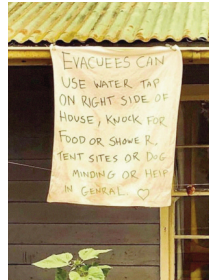 EVACUEES CAN
USE WATER TAP
ON RIGHT SIDE OF
HOUSE, KNOCK FOR
FOOD OR SHOWER.
TENT SITES OR DOG
MINDING OR HELP
IN GENRAL. ♡